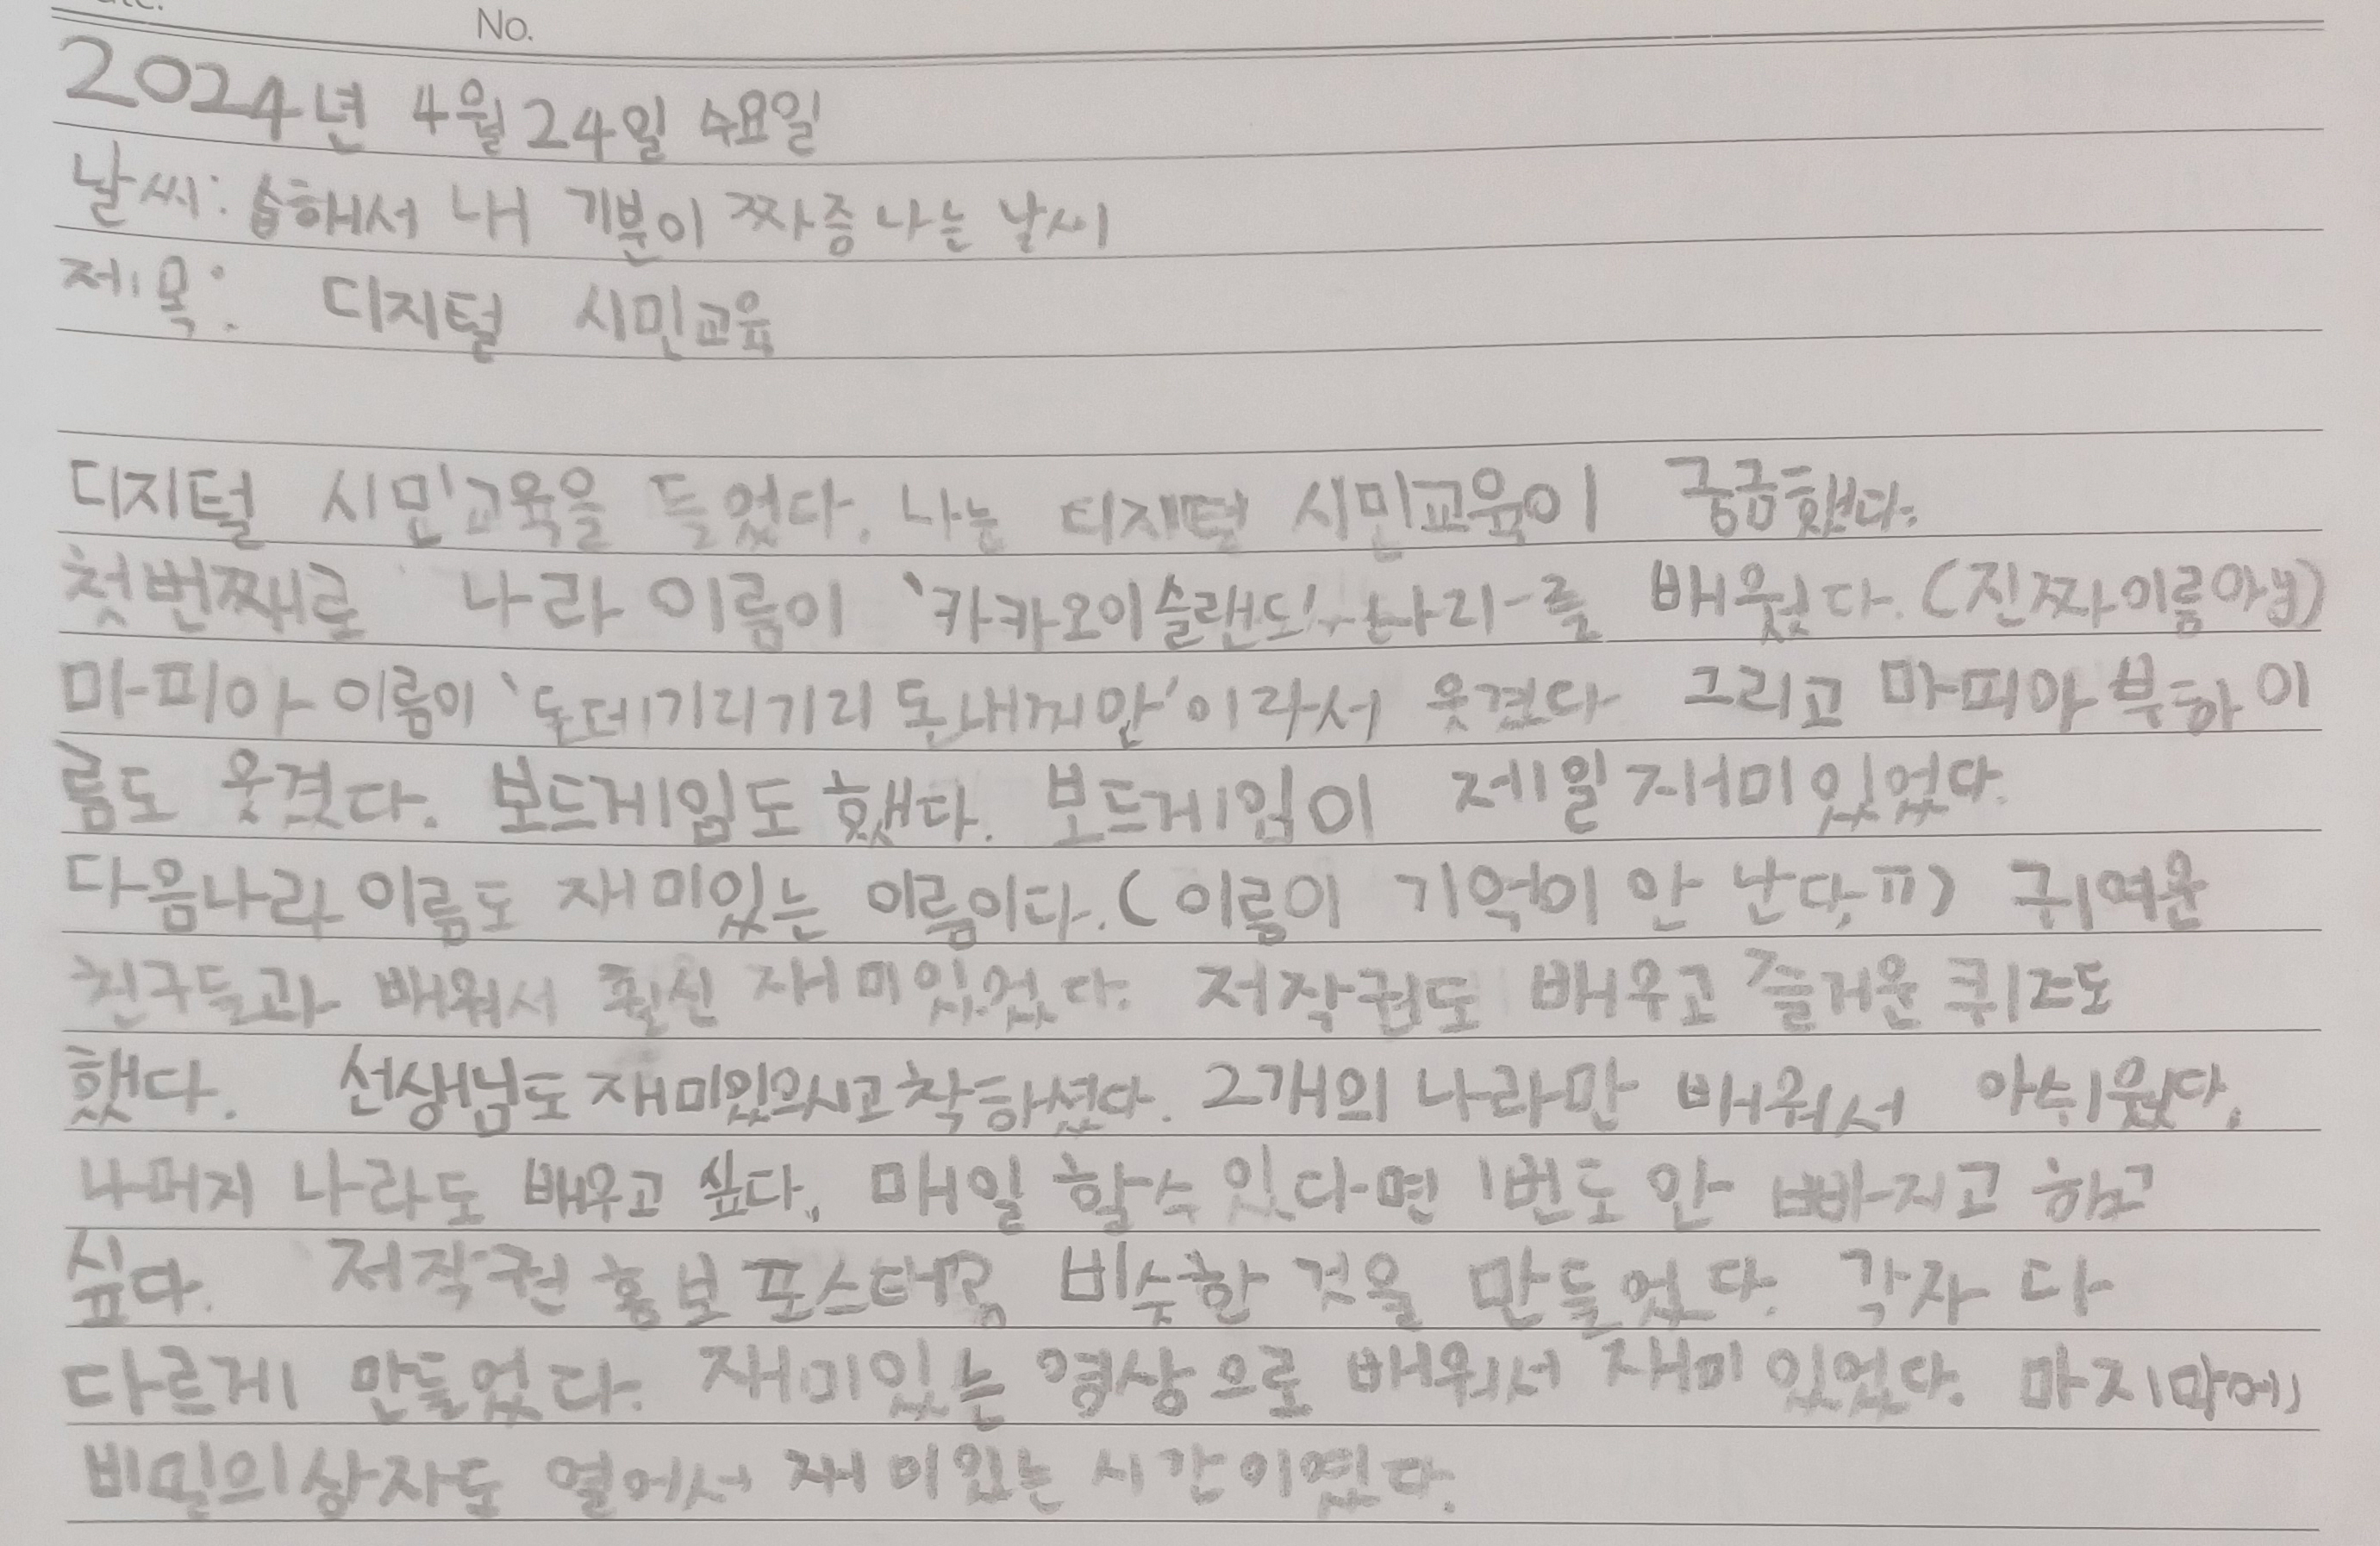 No.
2024년 4월 24일 수요일
날씨: 습해서 내 기분이 짜증 나는 날씨
제목: 디지털 시민교육
디지털 시민교육을 들었다. 나는 디지털 시민교육이 궁금했다.
첫번째로 나라 이름이 '카카오이슬랜드' 나라를 배웠다. (진짜이름아님)
마피아 이름이 '돈데기리기리 돈내찌만'이라서 웃겼다 그리고 마피아 부하 이
름도 웃겼다. 보드게임도 했다. 보드게임이 제일 재미있었다.
다음나라 이름도 재미있는 이름이다. (이름이 기억이 안 난다.ㅠ) 귀여운
친구들과 배워서 훨신 재미있었다. 저작권도 배우고 즐거운 퀴즈도
했다. 선생님도 재미있으시고 착하셨다. 2개의 나라만 배워서 아쉬웠다.
나머지 나라도 배우고 싶다. 매일 할수 있다면 1번도 안 빠지고 하고
싶다. 저작권 홍보 포스터랑 비슷한 것을 만들었다. 각자 다
다르게 만들었다. 재미있는 영상으로 배워서 재미있었다. 마지막에
비밀의상자도 열어서 재미있는 시간이였다.